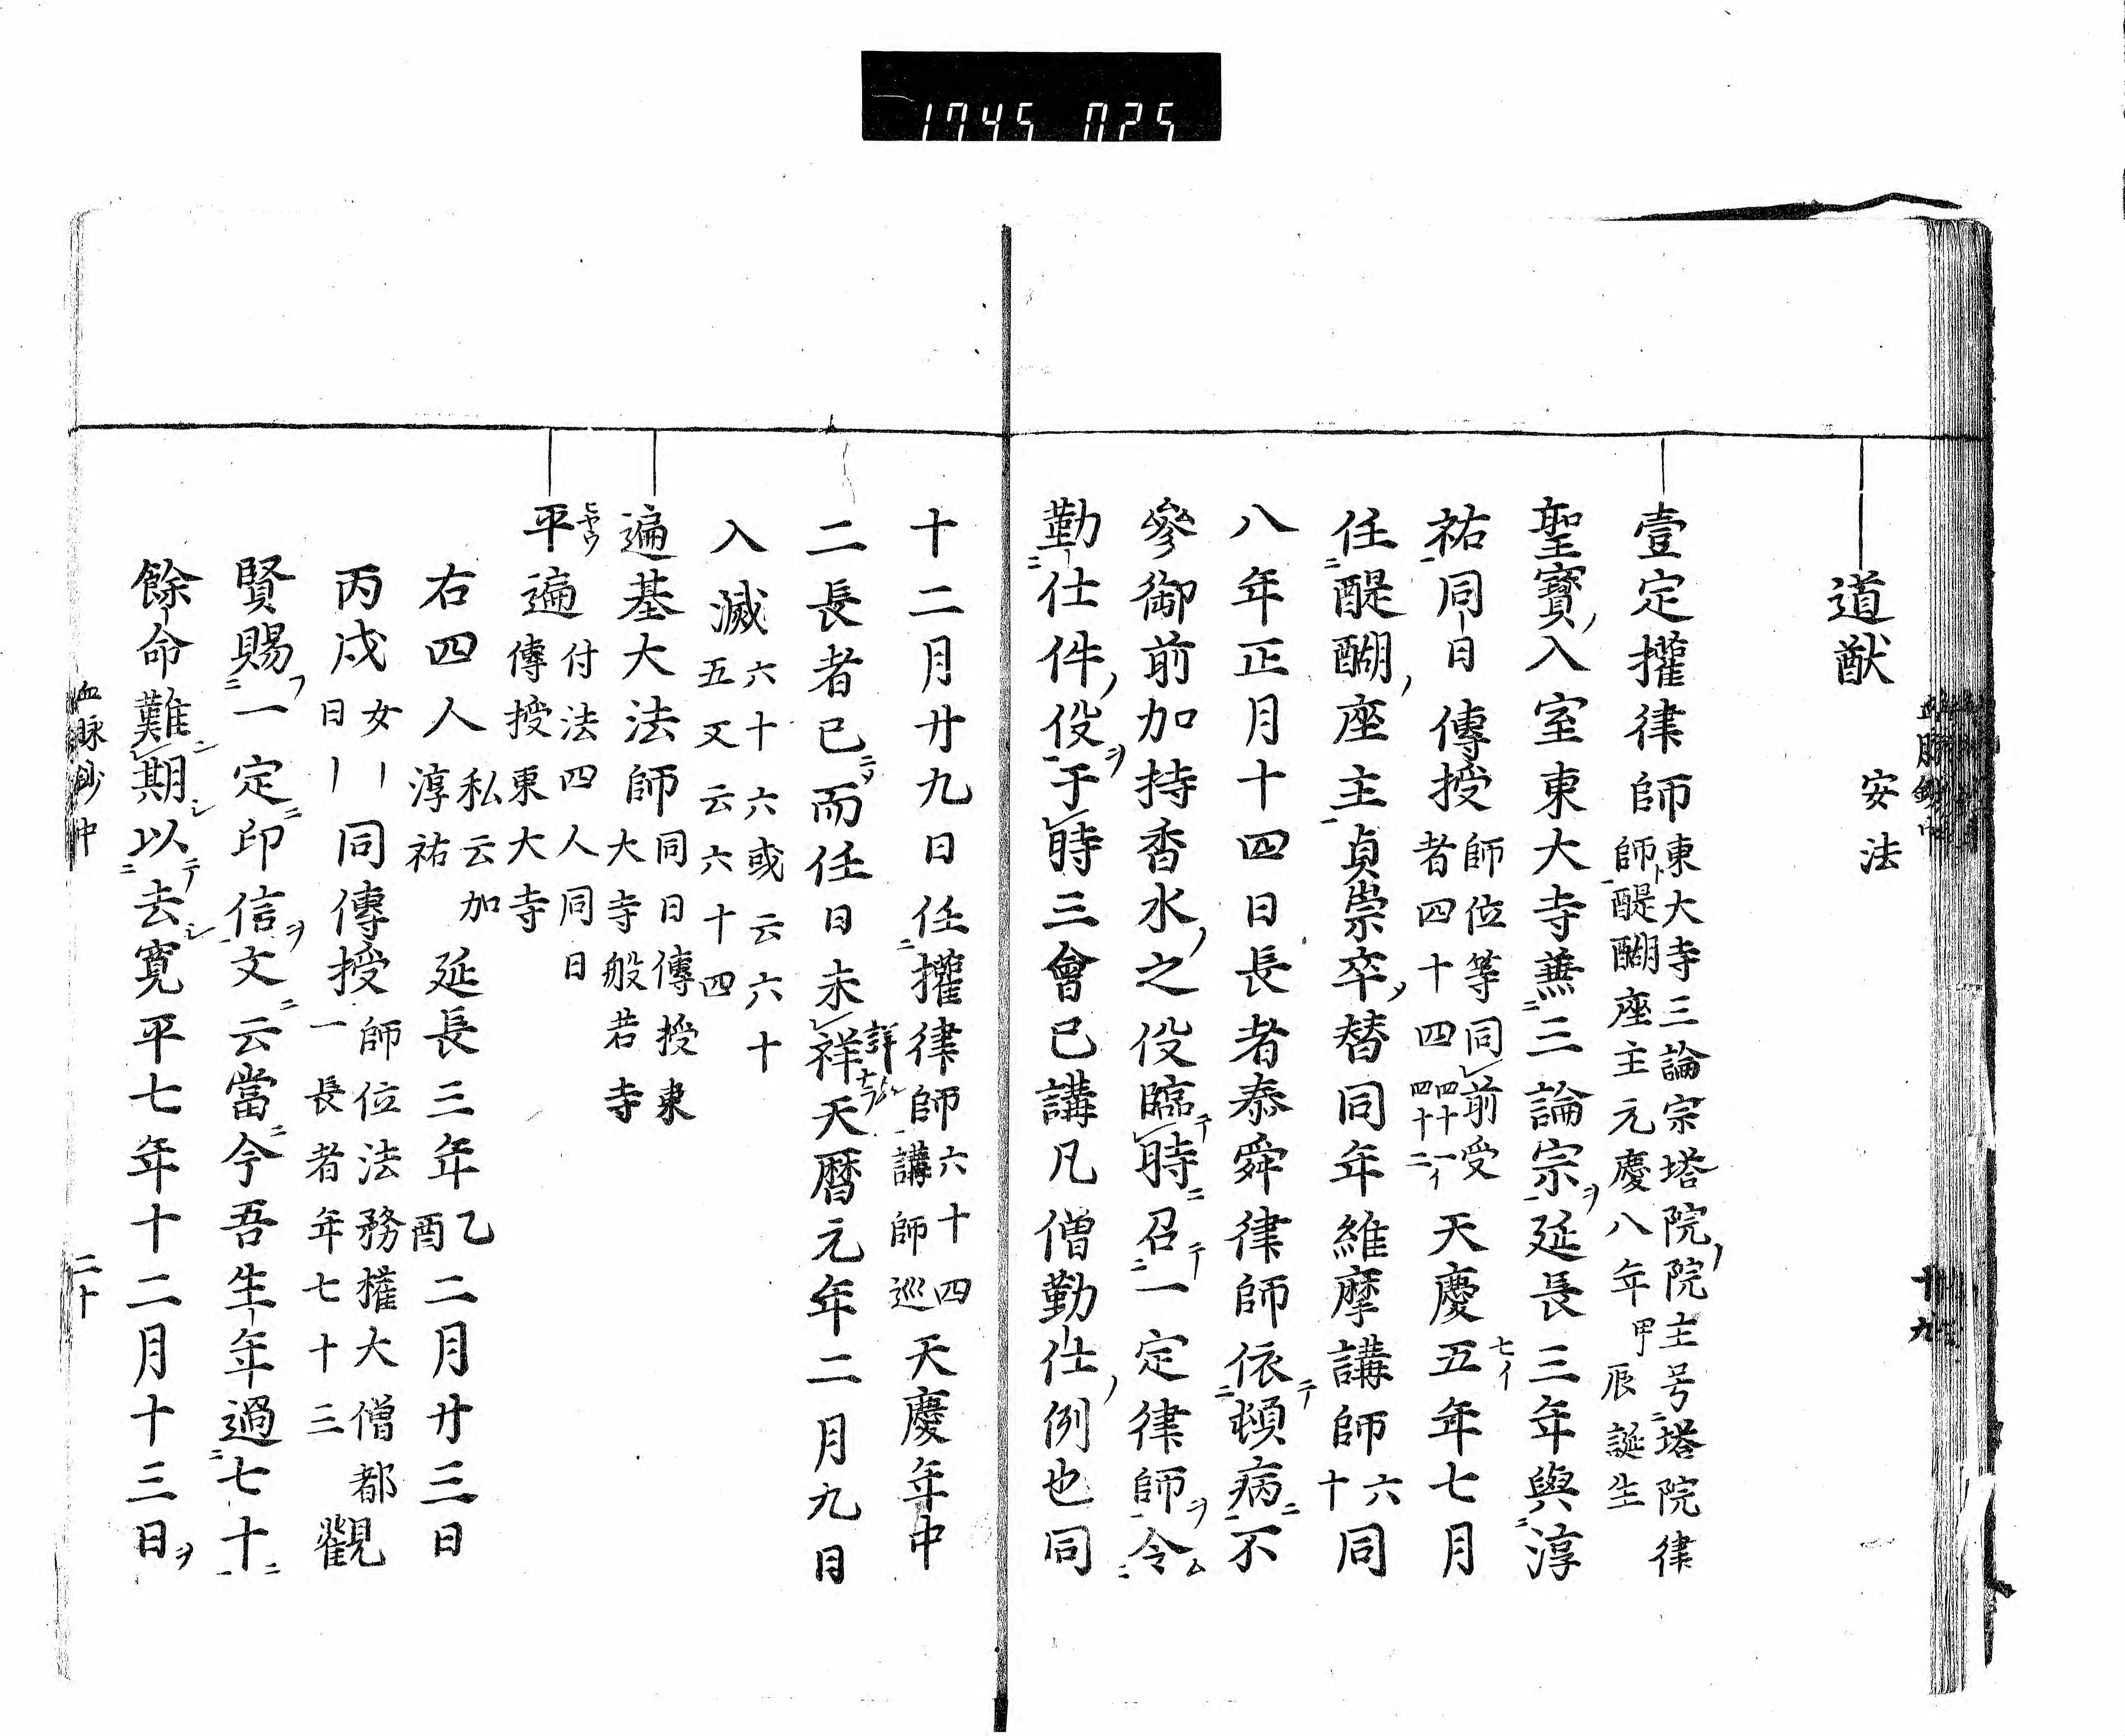 1745 025
道猷 安法
壹定權律師 東大寺三論宗塔院院主号塔院律
師醍醐座主元慶八年甲辰誕生
聖寶ノ入室東大寺兼三論宗ヲ延長三年與淳
祐同日傳授 師位等同前受
者四十四 四十一イ
四十二 天慶五七イ年七月
任醍醐ノ座主貞崇卒ノ替同年維摩講師 六
十 同
八年正月十四日長者泰舜律師依テ頓病ニ不
參御前加持香水ノ之役臨テ時ニ召テ一定律師ヲ令ム
勤仕件ノ役ヲ于時三會已講凡僧勤仕ノ例也同
十二月廿九日任權律師 六十四
講師巡 天慶年中
二長者已而任日未祥詳天曆元年二月九日
入滅 六十六或云六十
五又云六十四
遍基大法師 同日傳授東
大寺般若寺
平遍 付法四人同日
傳授東大寺
右四人 私云加
淳祐 延長三年 乙
酉 二月廿三日
丙戌 女〡
日〡 同傳授 師位法務權大僧都
一長者年七十三 觀
賢賜フ一定ニ印信ヲ文ニ云當ニ今吾生年過七十ニ
餘命難ニ期シ以テ去シ寛平七年十二月十三日ヲ
血脉鈔中 二十
血脉鈔中 十九